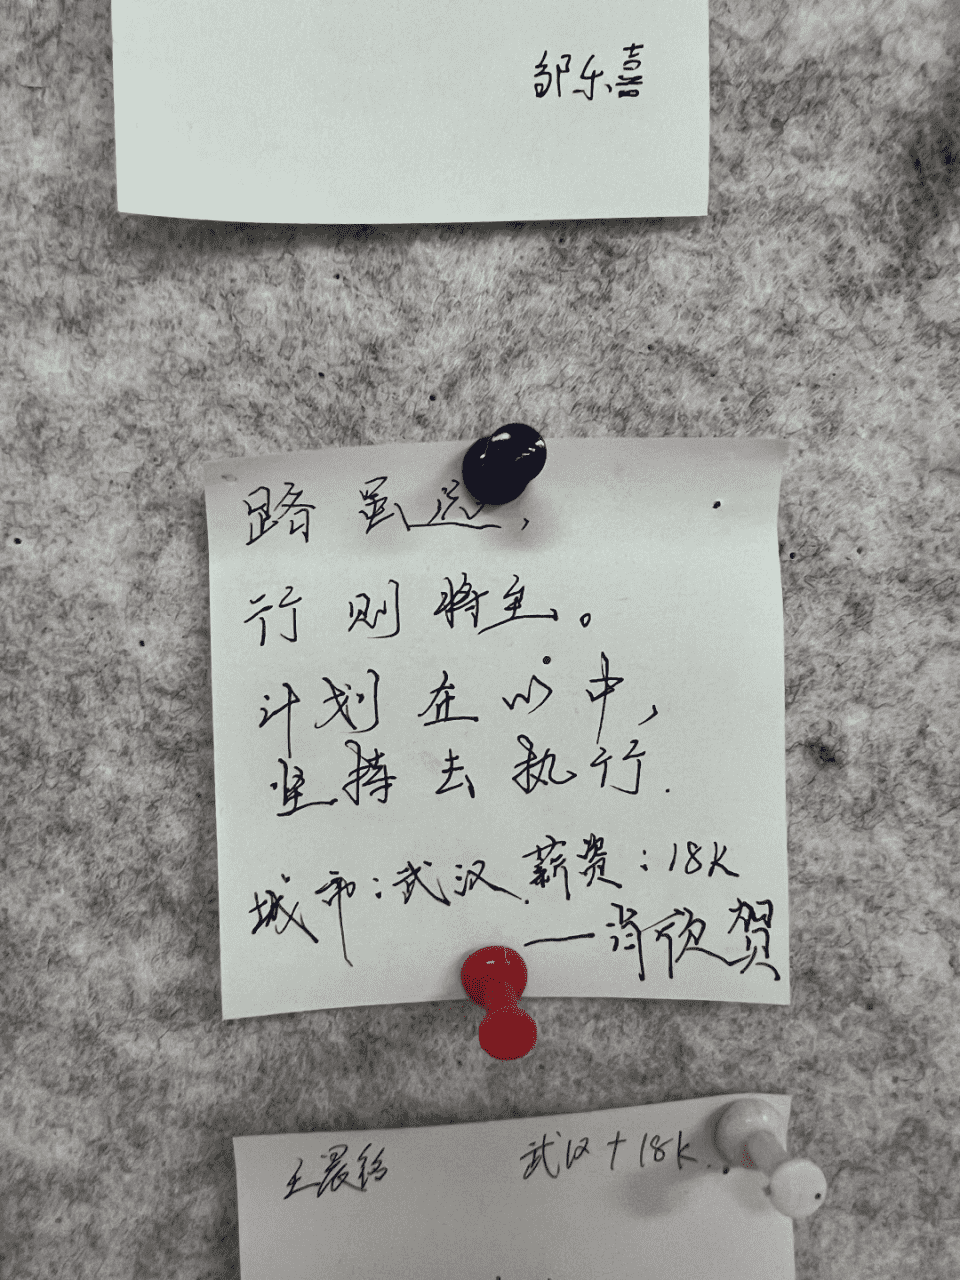 邹乐喜
路虽远,
行则将至。
计划在心中,
坚持去执行.
城市:武汉 薪资:18K
—肖欣贺
王晨铭 武汉+18K